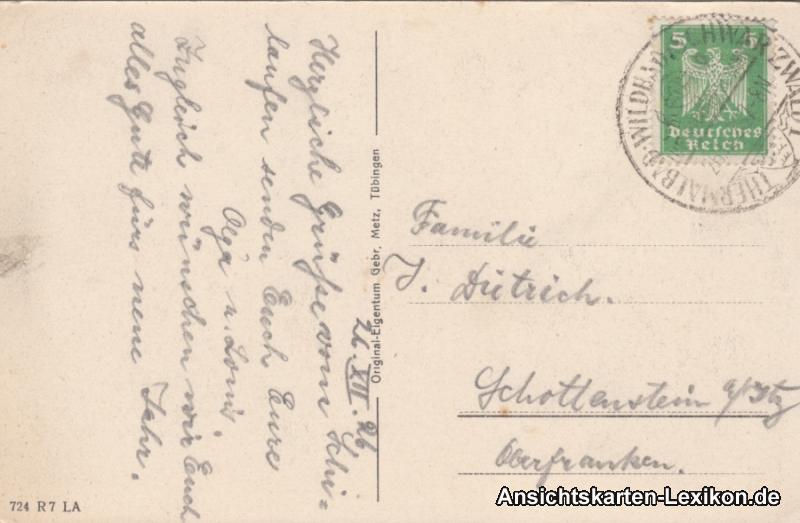 26.XII.26
Herzliche Grüße vom Schi-
laufen senden Euch Eure
Olga u. Louis
Zugleich wünschen wir Euch
alles Gute fürs neue Jahr.
Original-Eigentum Gebr. Metz, Tübingen
5 5
Deutsches
Reich
WILDBAD SCHWARZWALD
THERMALBAD
Familie
J. Dietrich.
Schottenstein a/Itz
Oberfranken.
724 R 7 LA
Ansichtskarten-Lexikon.de